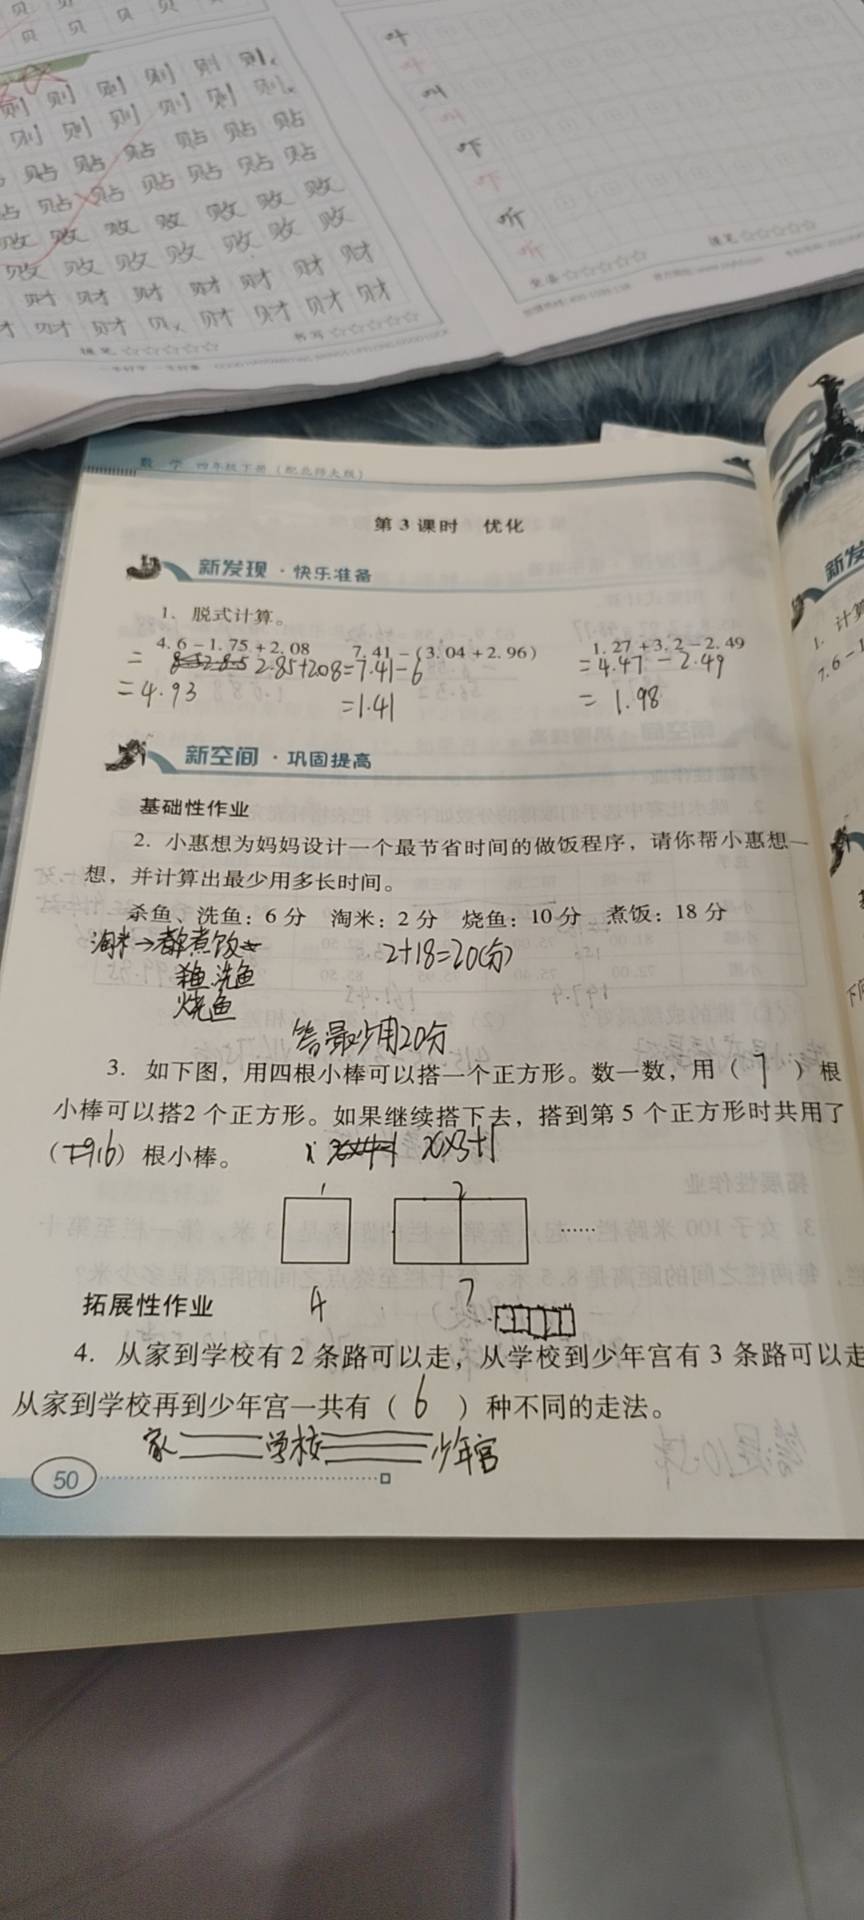 则 则 则 则 则 则
则 则 则 则 则 则
贴 贴 贴 贴 贴 贴
贴 贴 贴 贴 贴 贴
败 败 败 败 败 败 败
败 败 败 败 败 败 败
财 财 财 财 财 财 财
财 财 财 财 财 财 财
叶
叶
叫
叫
吓
吓
听
听
数 学 四年级下册(配北师大版)
第3课时 优化
新发现·快乐准备
1. 脱式计算。
4.6-1.75+2.08 7.41-(3.04+2.96) 1.27+3.2-2.49
= 2.85+2.08 =7.41-6 =4.47-2.49
=4.93 =1.41 =1.98
新空间·巩固提高
基础性作业
2. 小惠想为妈妈设计一个最节省时间的做饭程序,请你帮小惠想一
想,并计算出最少用多长时间。
杀鱼、洗鱼:6分 淘米:2分 烧鱼:10分 煮饭:18分
淘米→煮饭 2+18=20(分)
洗鱼
烧鱼
答最少用20分
3. 如下图,用四根小棒可以搭一个正方形。数一数,用( 7 )根
小棒可以搭2个正方形。如果继续搭下去,搭到第5个正方形时共用了
(16)根小棒。 x×3+1
1 2
……
4 7
拓展性作业
4. 从家到学校有2条路可以走,从学校到少年宫有3条路可以走
从家到学校再到少年宫一共有( 6 )种不同的走法。
家 学校 少年宫
50
新发
1. 计算
7.6-1